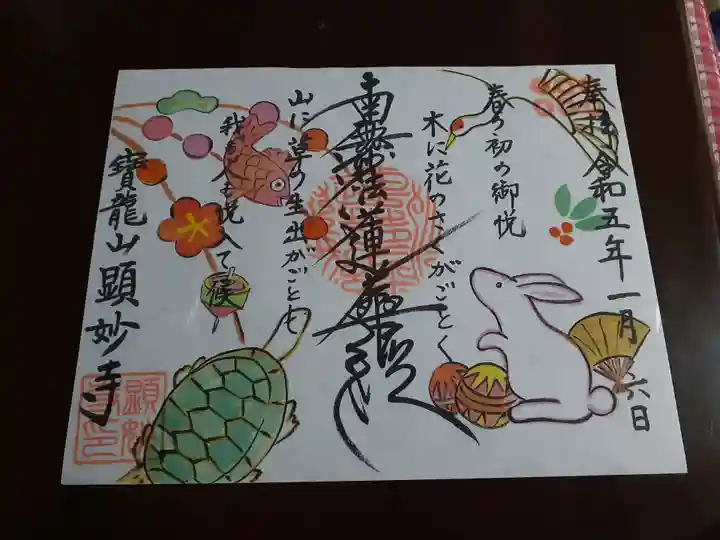 奉拝 令和五年一月六日
春の初の御悦
木に花のさくがごとく
南無妙法蓮華経
山に草の生出がごとし
我も人も悦入て候
寶龍山顕妙寺